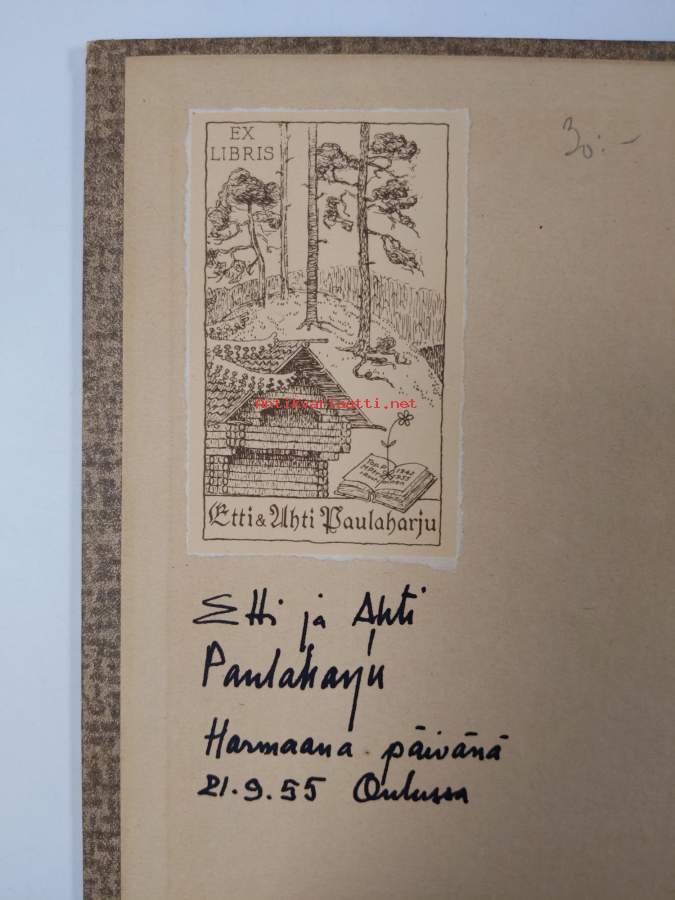 EX
LIBRIS
30:-
Antikvariaatti.net
Etti & Ahti Paulaharju
Etti ja Ahti
Paulaharju
Harmaana päivänä
21.9.55 Oulussa